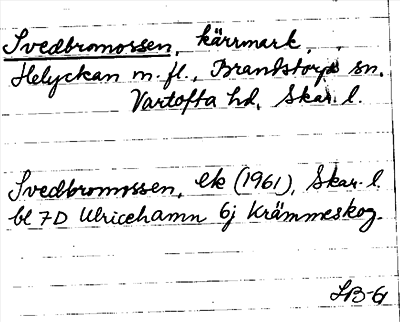 Svedbromossen, kärrmark,
Helyckan m. fl., Brandstorps sn.
Vartofta hd, Skar. l.
Svedbromossen, ek (1961), Skar. l.
bl 7D Ulricehamn 6j Krämmeskog.